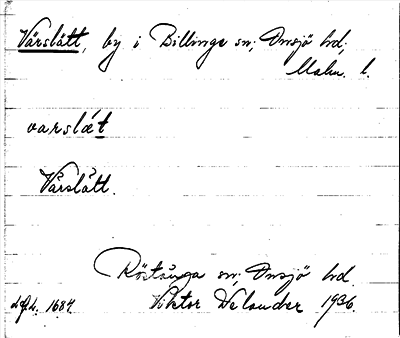 Värslått, by i Billinge sn; Onsjö hd;
Malm. l.
varslǽt
Värslått.
Röstånga sn; Onsjö hd.
Viktor Welander 1936.
1684.